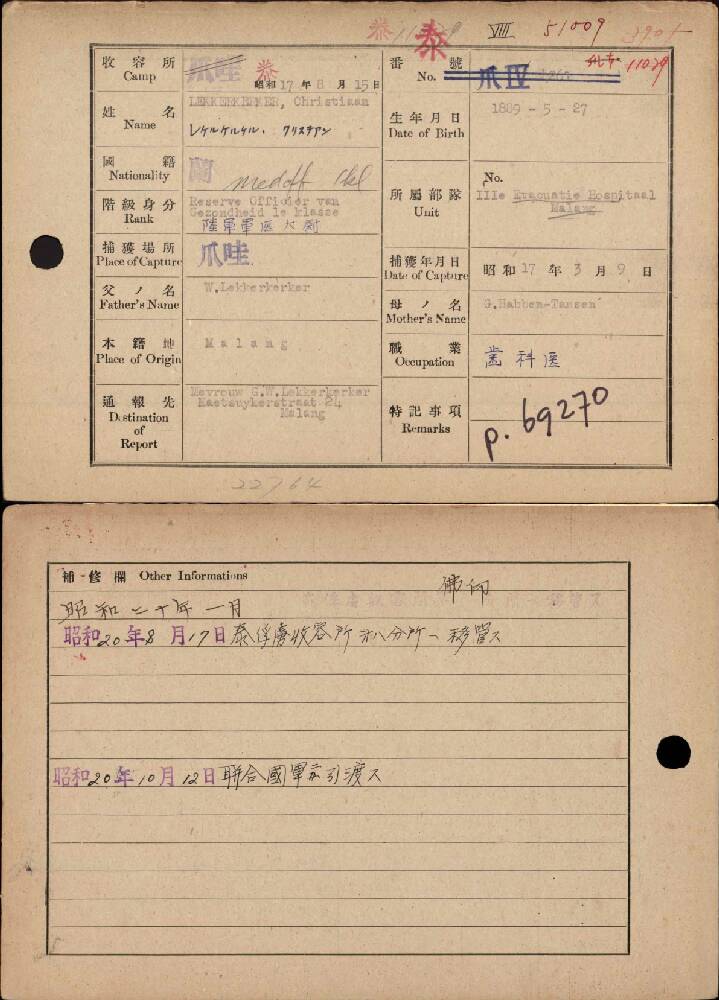 泰 VIII 51009
泰
收容所 Camp 爪哇 泰 昭和17年8月15日
番號 No. 爪IV 11029
姓名 Name LEKKERKERKER, Christiaan
レケルケルケル. クリスチアン
生年月日 Date of Birth 1889-5-27
國籍 Nationality 蘭
階級身分 Rank Reserve Officier van
Gezondheid 1e klasse
所屬部隊 Unit No. IIIe Evacuatie Hospitaal
Malang
捕獲場所 Place of Capture 爪哇
捕獲年月日 Date of Capture 昭和17年3月9日
父ノ名 Father's Name W.Lekkerkerker
母ノ名 Mother's Name G.Habben-Tansen
本籍地 Place of Origin Malang
職業 Occupation 歯科医
通報先 Destination of Report Mevrouw G.W.Lekkerkerker
Maetsuykerstraat 24
Malang
特記事項 Remarks p. 69270
22764
補修欄 Other Informations
佛印
昭和二十年一月
昭和20年8月17日泰俘虜收容所 分所ヘ移管ス
昭和20年10月12日聯合國軍ニ引渡ス